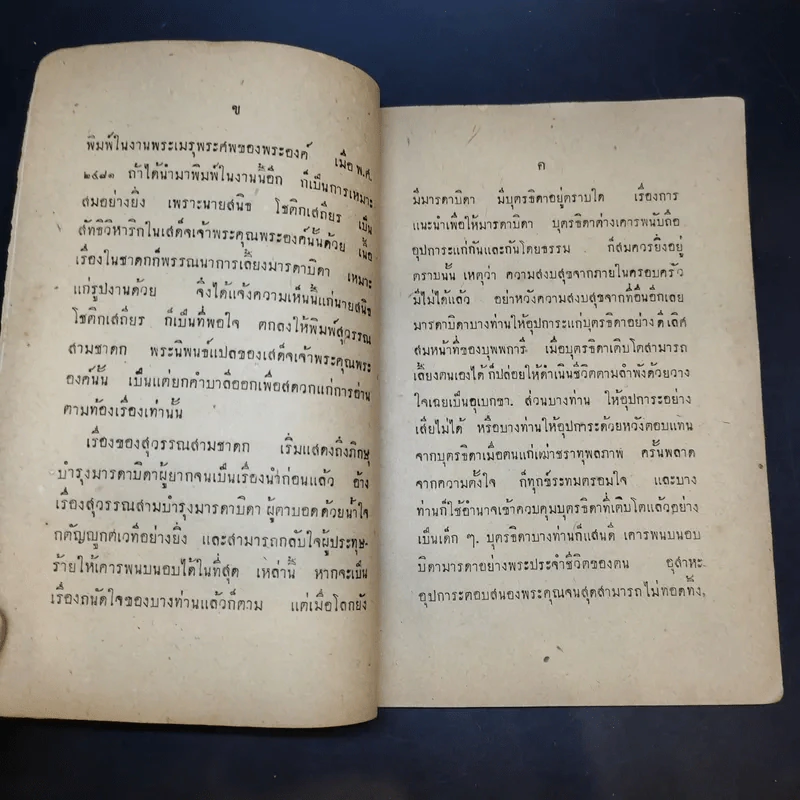 ข
พิมพ์ในงานพระเมรุพระศพของพระองค์ เมื่อ พ.ศ.
๒๔๘๑ ถ้าได้นำมาพิมพ์ในงานนี้อีก ก็เป็นการเหมาะ
สมอย่างยิ่ง เพราะนายสนิธ โชติกเสถียร เป็น
สัทธิวิหาริกในเสด็จเจ้าพระคุณพระองค์นั้นด้วย เนื้อ
เรื่องในชาดกก็พรรณนาการเลี้ยงมารดาบิดา เหมาะ
แก่รูปงานด้วย จึงได้แจ้งความเห็นนี้แก่นายสนิธ
โชติกเสถียร ก็เป็นที่พอใจ ตกลงให้พิมพ์สุวรรณ
สามชาดก พระนิพนธ์แปลของเสด็จเจ้าพระคุณพระ
องค์นั้น เป็นแต่ยกคำบาลีออกเพื่อสดวกแก่การอ่าน
ตามท้องเรื่องเท่านั้น
เรื่องของสุวรรณสามชาดก เริ่มแสดงถึงภิกษุ
บำรุงมารดาบิดาผู้ยากจนเป็นเรื่องนำก่อนแล้ว อ้าง
เรื่องสุวรรณสามบำรุงมารดาบิดา ผู้ตาบอดด้วยน้ำใจ
กตัญญูกตเวทีอย่างยิ่ง และสามารถกลับใจผู้ประทุษ-
ร้ายให้เคารพนบนอบได้ในที่สุด เหล่านี้ หากจะเป็น
เรื่องถนัดใจของบางท่านแล้วก็ตาม แต่เมื่อโลกยัง
ค
มีมารดาบิดา มีบุตรธิดาอยู่ตราบใด เรื่องการ
แนะนำเพื่อให้มารดาบิดา บุตรธิดาต่างเคารพนับถือ
อุปการะแก่กันและกันโดยธรรม ก็สมควรยิ่งอยู่
ตราบนั้น เหตุว่า ความสงบสุขจากภายในครอบครัว
มีไม่ได้แล้ว อย่าหวังความสงบสุขจากที่อื่นอีกเลย
มารดาบิดาบางท่านให้อุปการะแก่บุตรธิดาอย่างดีเลิศ
สมหน้าที่ของบุพพการี เมื่อบุตรธิดาเติบโตสามารถ
เลี้ยงตนเองได้ ก็ปล่อยให้ดำเนินชีวิตตามลำพังด้วยวาง
ใจเฉยเป็นอุเบกขา. ส่วนบางท่าน ให้อุปการะอย่าง
เสียไม่ได้ หรือบางท่านให้อุปการะด้วยหวังตอบแทน
จากบุตรธิดาเมื่อตนแก่เฒ่าชราทุพลภาพ ครั้นพลาด
จากความตั้งใจ ก็ทุกข์ระทมตรอมใจ และบาง
ท่านก็ใช้อำนาจเข้าควบคุมบุตรธิดาที่เติบโตแล้วอย่าง
เป็นเด็ก ๆ. บุตรธิดาบางท่านก็แสนดี เคารพนบนอบ
บิดามารดาอย่างพระประจำชีวิตของตน อุสาหะ
อุปการะตอบสนองพระคุณจนสุดสามารถ ไม่ทอดทิ้ง,